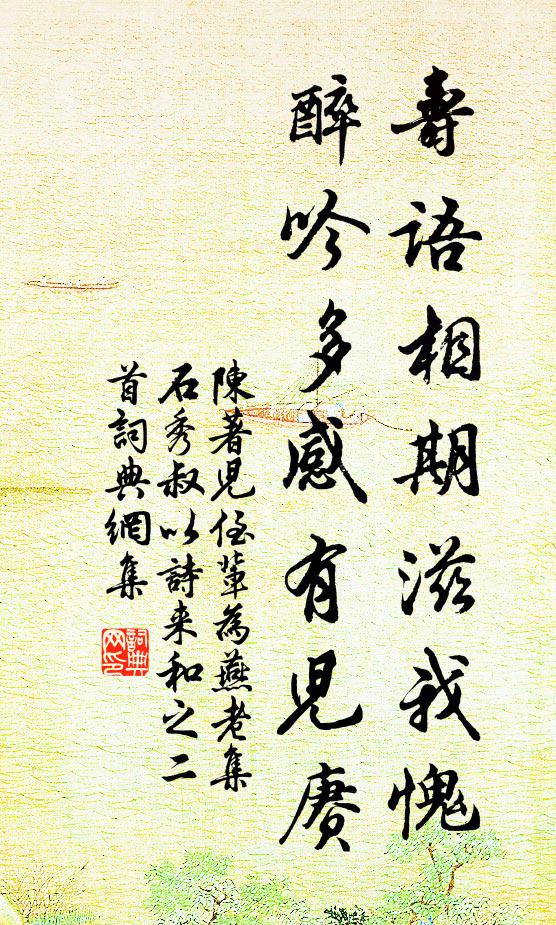 壽語相期滋我愧
醉吟多感有兒賡
陳著兒侄輩為燕老集
石秀叔以詩来和之二
首詞典網集
詞典网印